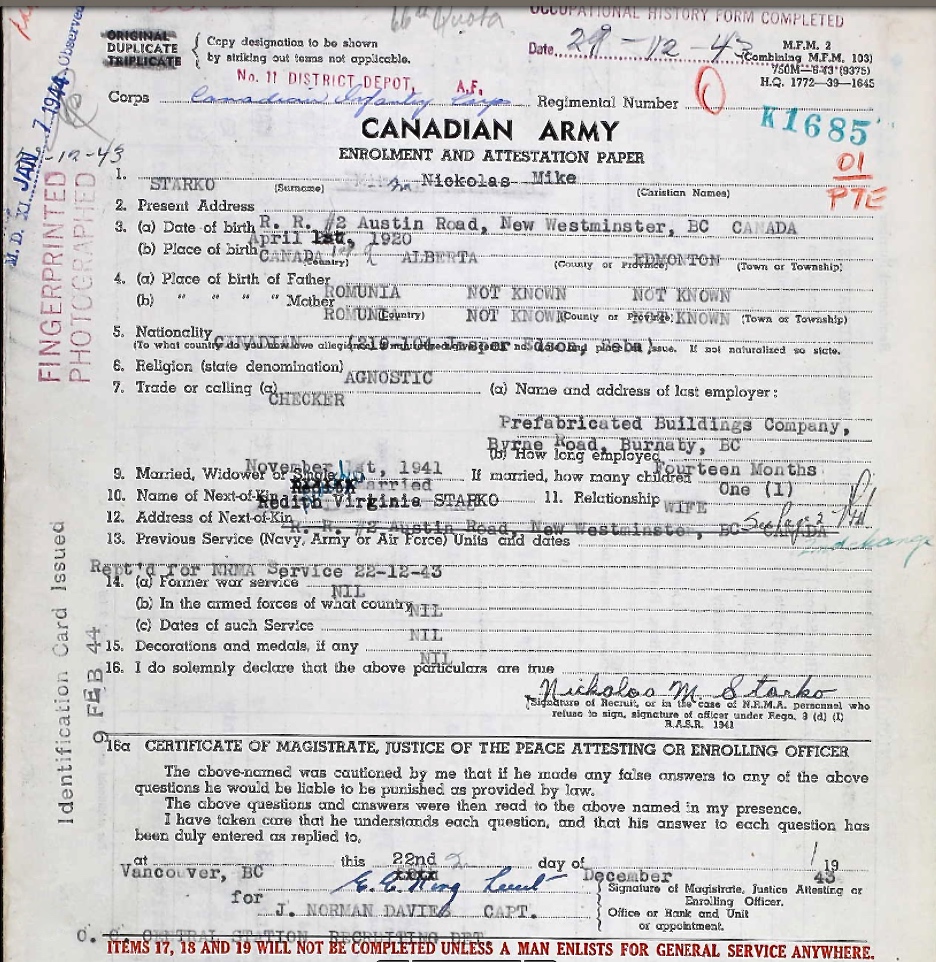 66th Quota
OCCUPATIONAL HISTORY FORM COMPLETED
Date 29-12-43
ORIGINAL
DUPLICATE
TRIPLICATE
Copy designation to be shown
by striking out terms not applicable.
M.F.M. 2
(Combining M.F.M. 103)
750M—8-43 (9375)
H.Q. 1772—39—1645
No. 11 DISTRICT DEPOT, A.F.
Corps Canadian Infantry Corps Regimental Number
K1685
01
PTE
CANADIAN ARMY
ENROLMENT AND ATTESTATION PAPER
M.D. XI JAN. 7 1944 Observed
-12-43
FINGERPRINTED
PHOTOGRAPHED
1. STARKO Nickolas Mike
(Surname) (Christian Names)
2. Present Address
R. R. #2 Austin Road, New Westminster, BC CANADA
3. (a) Date of birth
April 1st, 1920
(b) Place of birth
CANADA ALBERTA EDMONTON
(Country) (County or Province) (Town or Township)
4. (a) Place of birth of Father
ROMUNIA NOT KNOWN NOT KNOWN
(b) " " " " Mother
ROMUNIA NOT KNOWN NOT KNOWN
(Country) (County or Province) (Town or Township)
5. Nationality
CANADIAN
(To what country do you now owe allegiance issue. If not naturalized so state.
6. Religion (state denomination)
AGNOSTIC
7. Trade or calling (a) (a) Name and address of last employer:
CHECKER
Prefabricated Buildings Company,
Byrne Road, Burnaby, BC
(b) How long employed
Fourteen Months
November 1st, 1941
9. Married, Widower or Single If married, how many children
Married One (1)
10. Name of Next-of-Kin 11. Relationship
Redith Virginia STARKO WIFE
12. Address of Next-of-Kin
R. R. #2 Austin Road, New Westminster, BC CANADA
See Page 2
13. Previous Service (Navy, Army or Air Force) Units and dates
Rept'd for NRMA Service 22-12-43
14. (a) Former war service
NIL
(b) In the armed forces of what country
NIL
(c) Dates of such Service
NIL
15. Decorations and medals, if any
NIL
16. I do solemnly declare that the above particulars are true
Nickolas M. Starko
(Signature of Recruit, or in the case of N.R.M.A. personnel who
refuse to sign, signature of officer under Regn. 3 (d) (1)
R.A.S.R. 1941
Identification Card Issued
9 FEB 44
16a CERTIFICATE OF MAGISTRATE, JUSTICE OF THE PEACE ATTESTING OR ENROLLING OFFICER
The above-named was cautioned by me that if he made any false answers to any of the above
questions he would be liable to be punished as provided by law.
The above questions and answers were then read to the above named in my presence.
I have taken care that he understands each question, and that his answer to each question has
been duly entered as replied to.
at this 22nd day of 19
Vancouver, BC December 43
E. E. King Lieut
for
J. NORMAN DAVIES CAPT.
Signature of Magistrate, Justice Attesting or
Enrolling Officer.
Office or Rank and Unit
or appointment.
O. C. CENTRAL STATION RECRUITING DET
ITEMS 17, 18 AND 19 WILL NOT BE COMPLETED UNLESS A MAN ENLISTS FOR GENERAL SERVICE ANYWHERE.